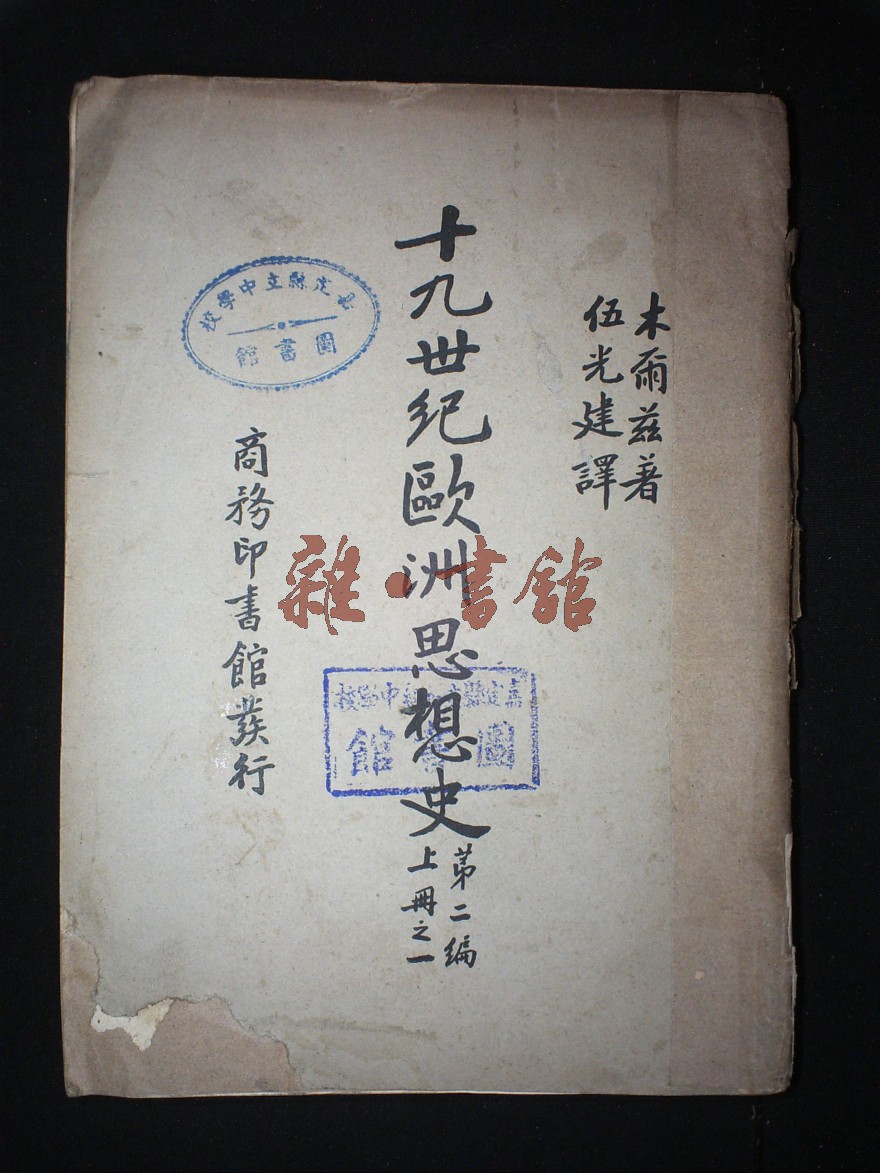 木爾茲著
伍光建譯
十九世纪歐洲思想史
第二編
上冊之一
商務印書館发行
嘉定縣立中學校
圖書館
嘉定縣中學校
圖書館
雜·書館